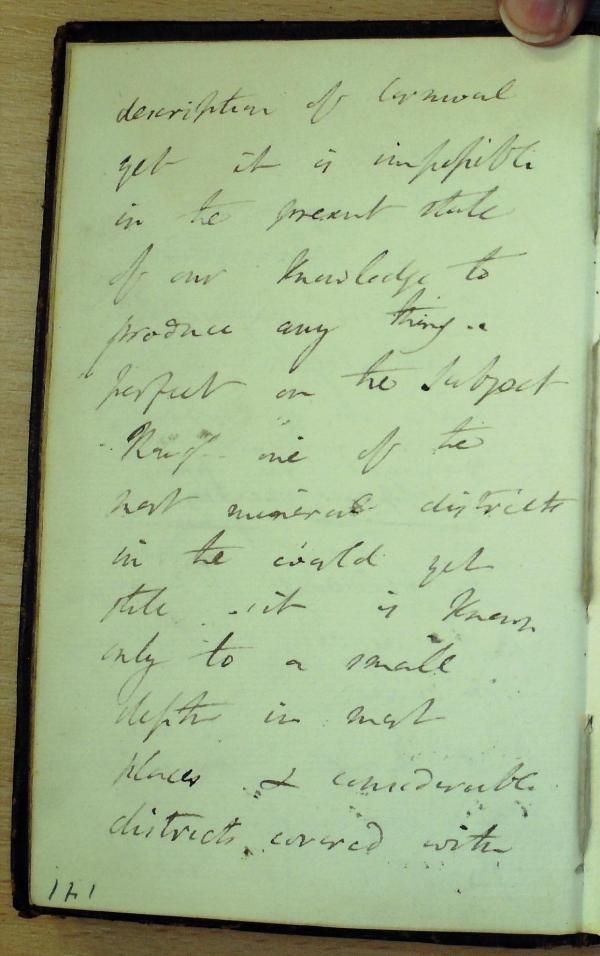 description of Cornwal
yet it is impossible
in the present state
of our Knowledge to
produce any thing
perfect on the Subject
Though one of the
most mineral districts
in the world yet
still it is Known
only to a small
depth in most
places & considerable
districts covered with
141